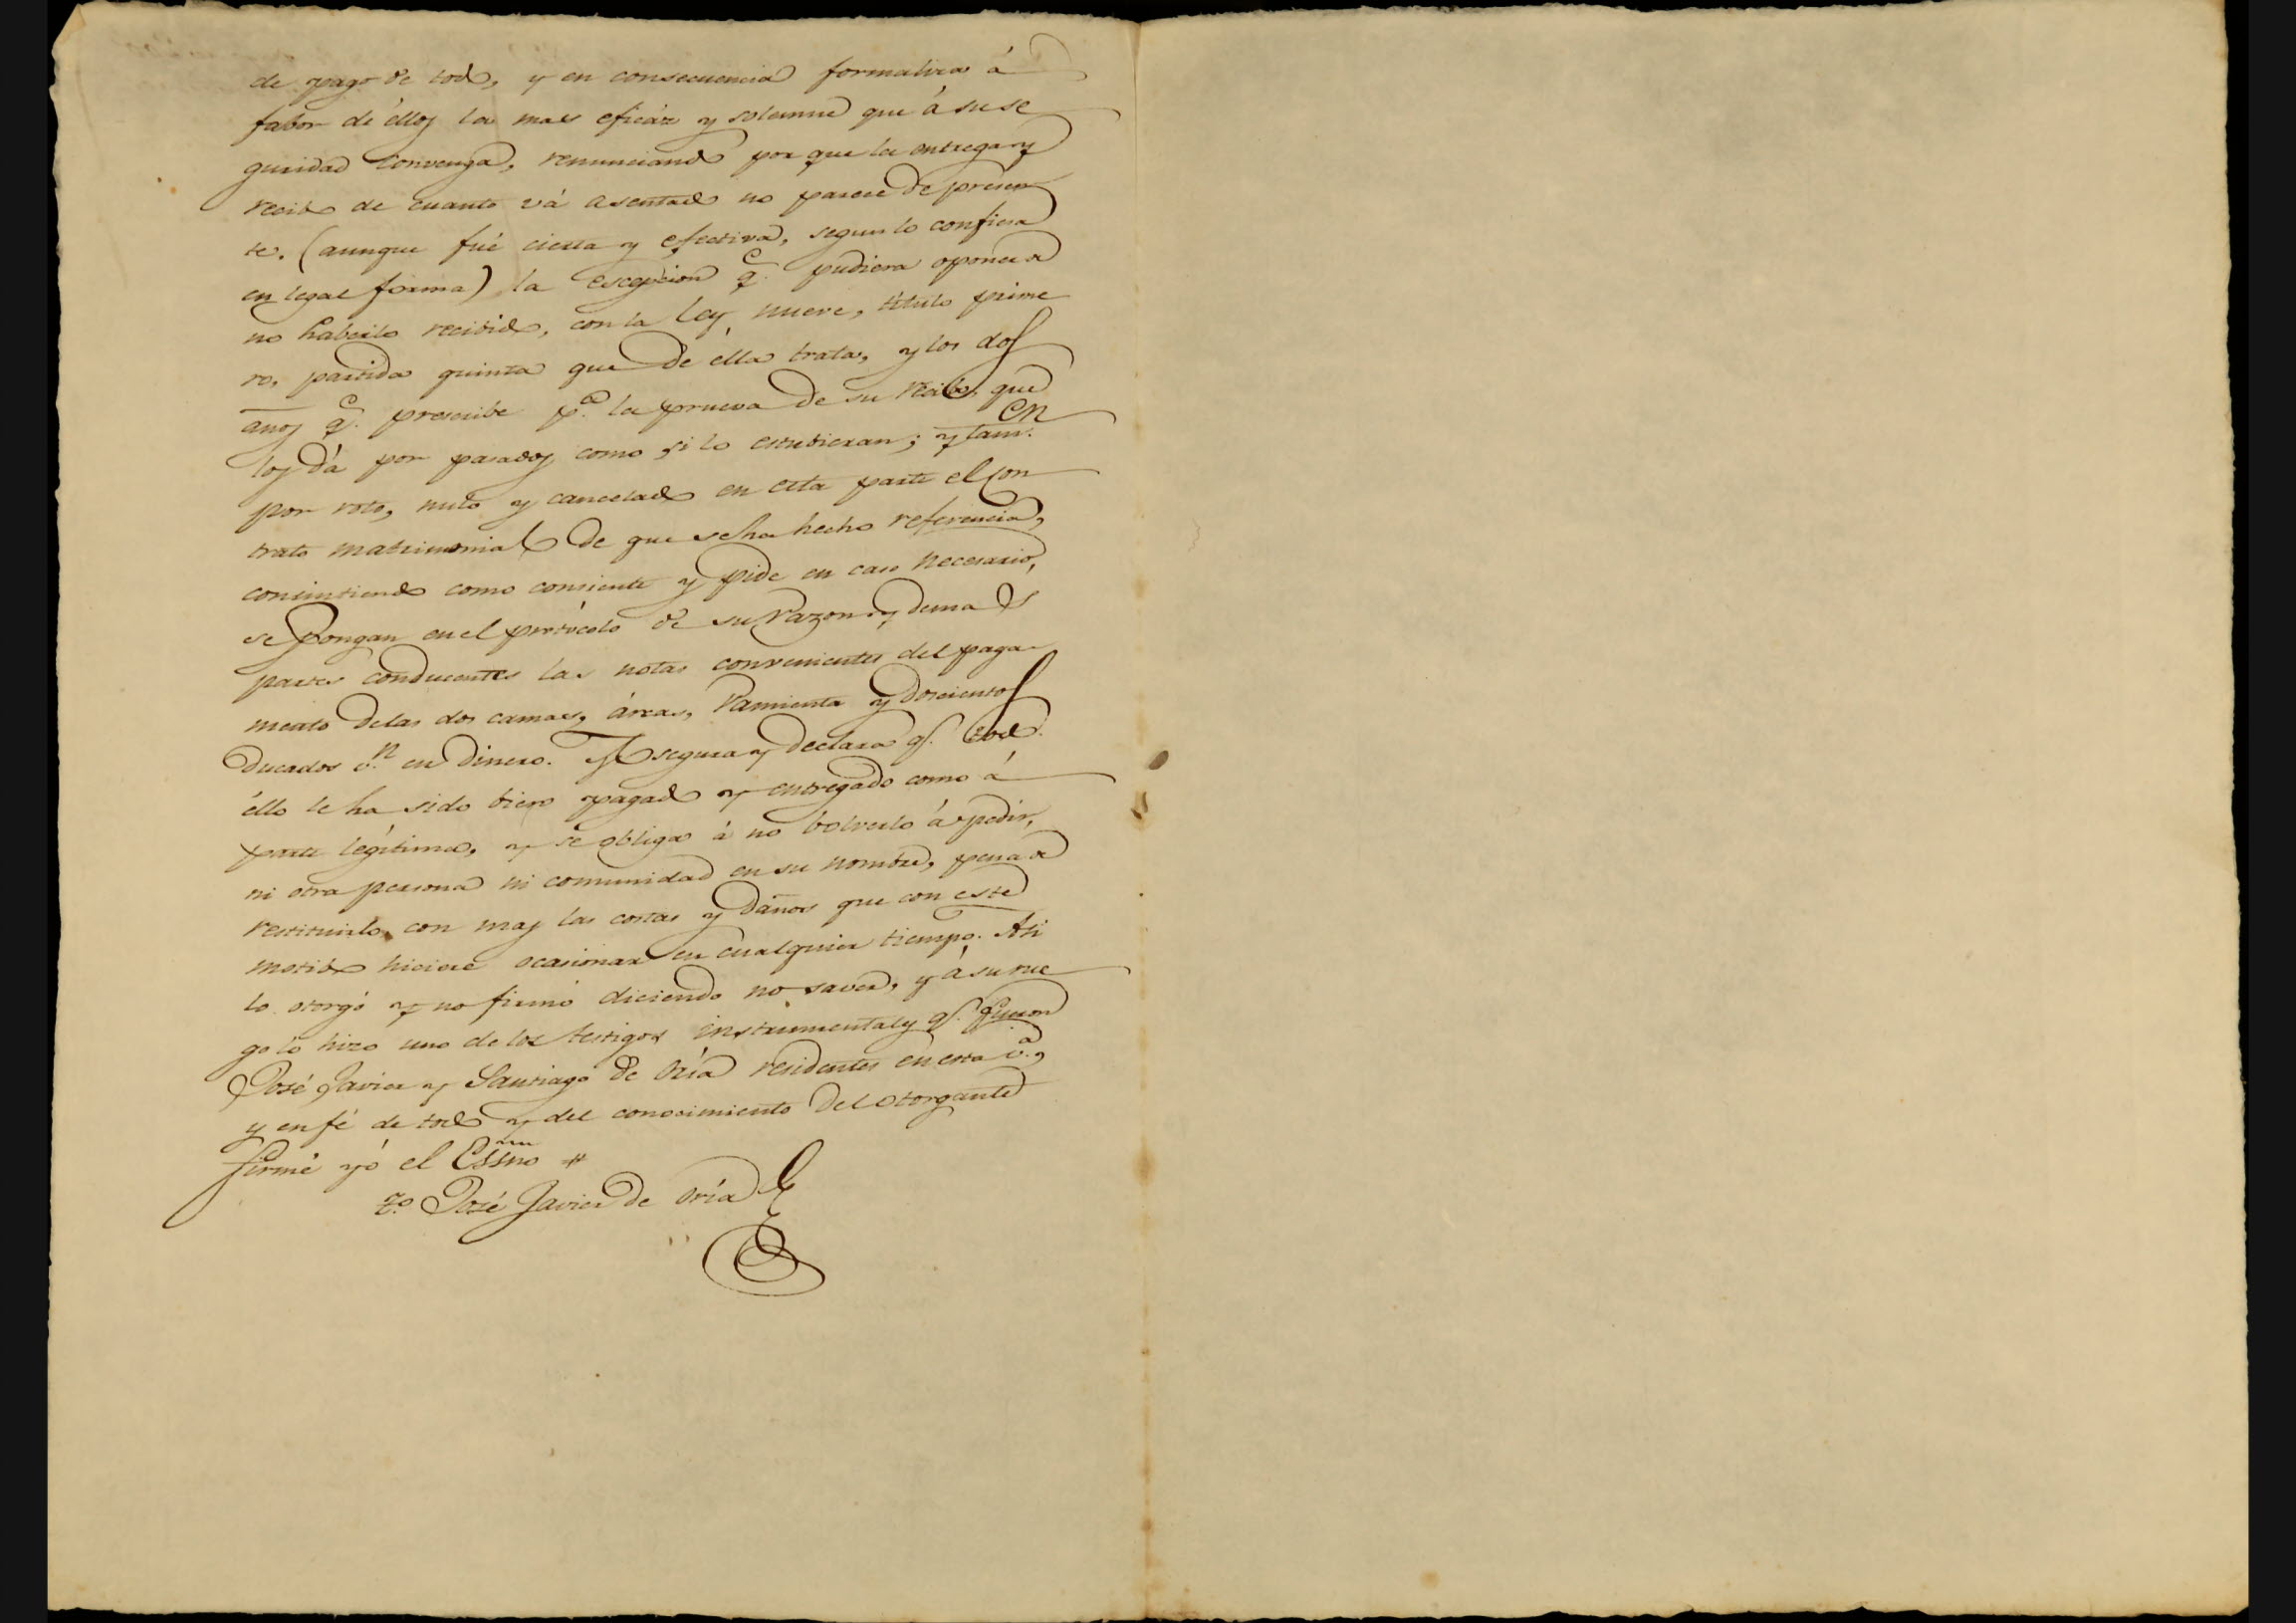 de pago de todo, y en consecuencia formaliza á
fabor de éllos la mas eficáz y solemne que á su se
guridad convenga, renunciando por que la entrega y
recibo de cuanto vá asentado no parece de presen
te. (aunque fué cierta y efectiva, segun lo confiesa
en legal forma) la escepcion q.e pudiera oponer de
no haberlo recibido, con la Ley nueve, titulo prime
ro, partida quinta que de élla trata, y los dos
años q.e prescribe p.a la prueva de su recibo, que
los dá por pasados como si lo estubieran; y tam.en
por roto, nulo y cancelado en esta parte el con
trato matrimonial de que se ha hecho referencia,
consintiendo como consiente y pide en caso necesario,
se pongan en el protócolo de su razon y demas
partes conducentes las notas convenientes del paga
mento de las dos camas, árcas, ramienta y doscientos
Ducados v.n en Dinero. Asegura y declara q.e todo
éllo le ha sido bien pagado y entregado como á
parte legítima, y se obliga á no bolverlo á pedir,
ni otra persona ni comunidad en su nombre, pena de
restituirlo con mas las costas y Daños que con este
motibo hiciere ocasionar en cualquier tiempo. Asi
lo otorgó y no firmó diciendo no saver, y á su rue
go lo hizo uno de los testigos instrumentales q.e fueron
José Javier y Santiago de Oria residentes en esta v.a,
y en fé de todo y del conocimiento del otorgante
firmé yó el Essno #
t.o José Javier de Oría